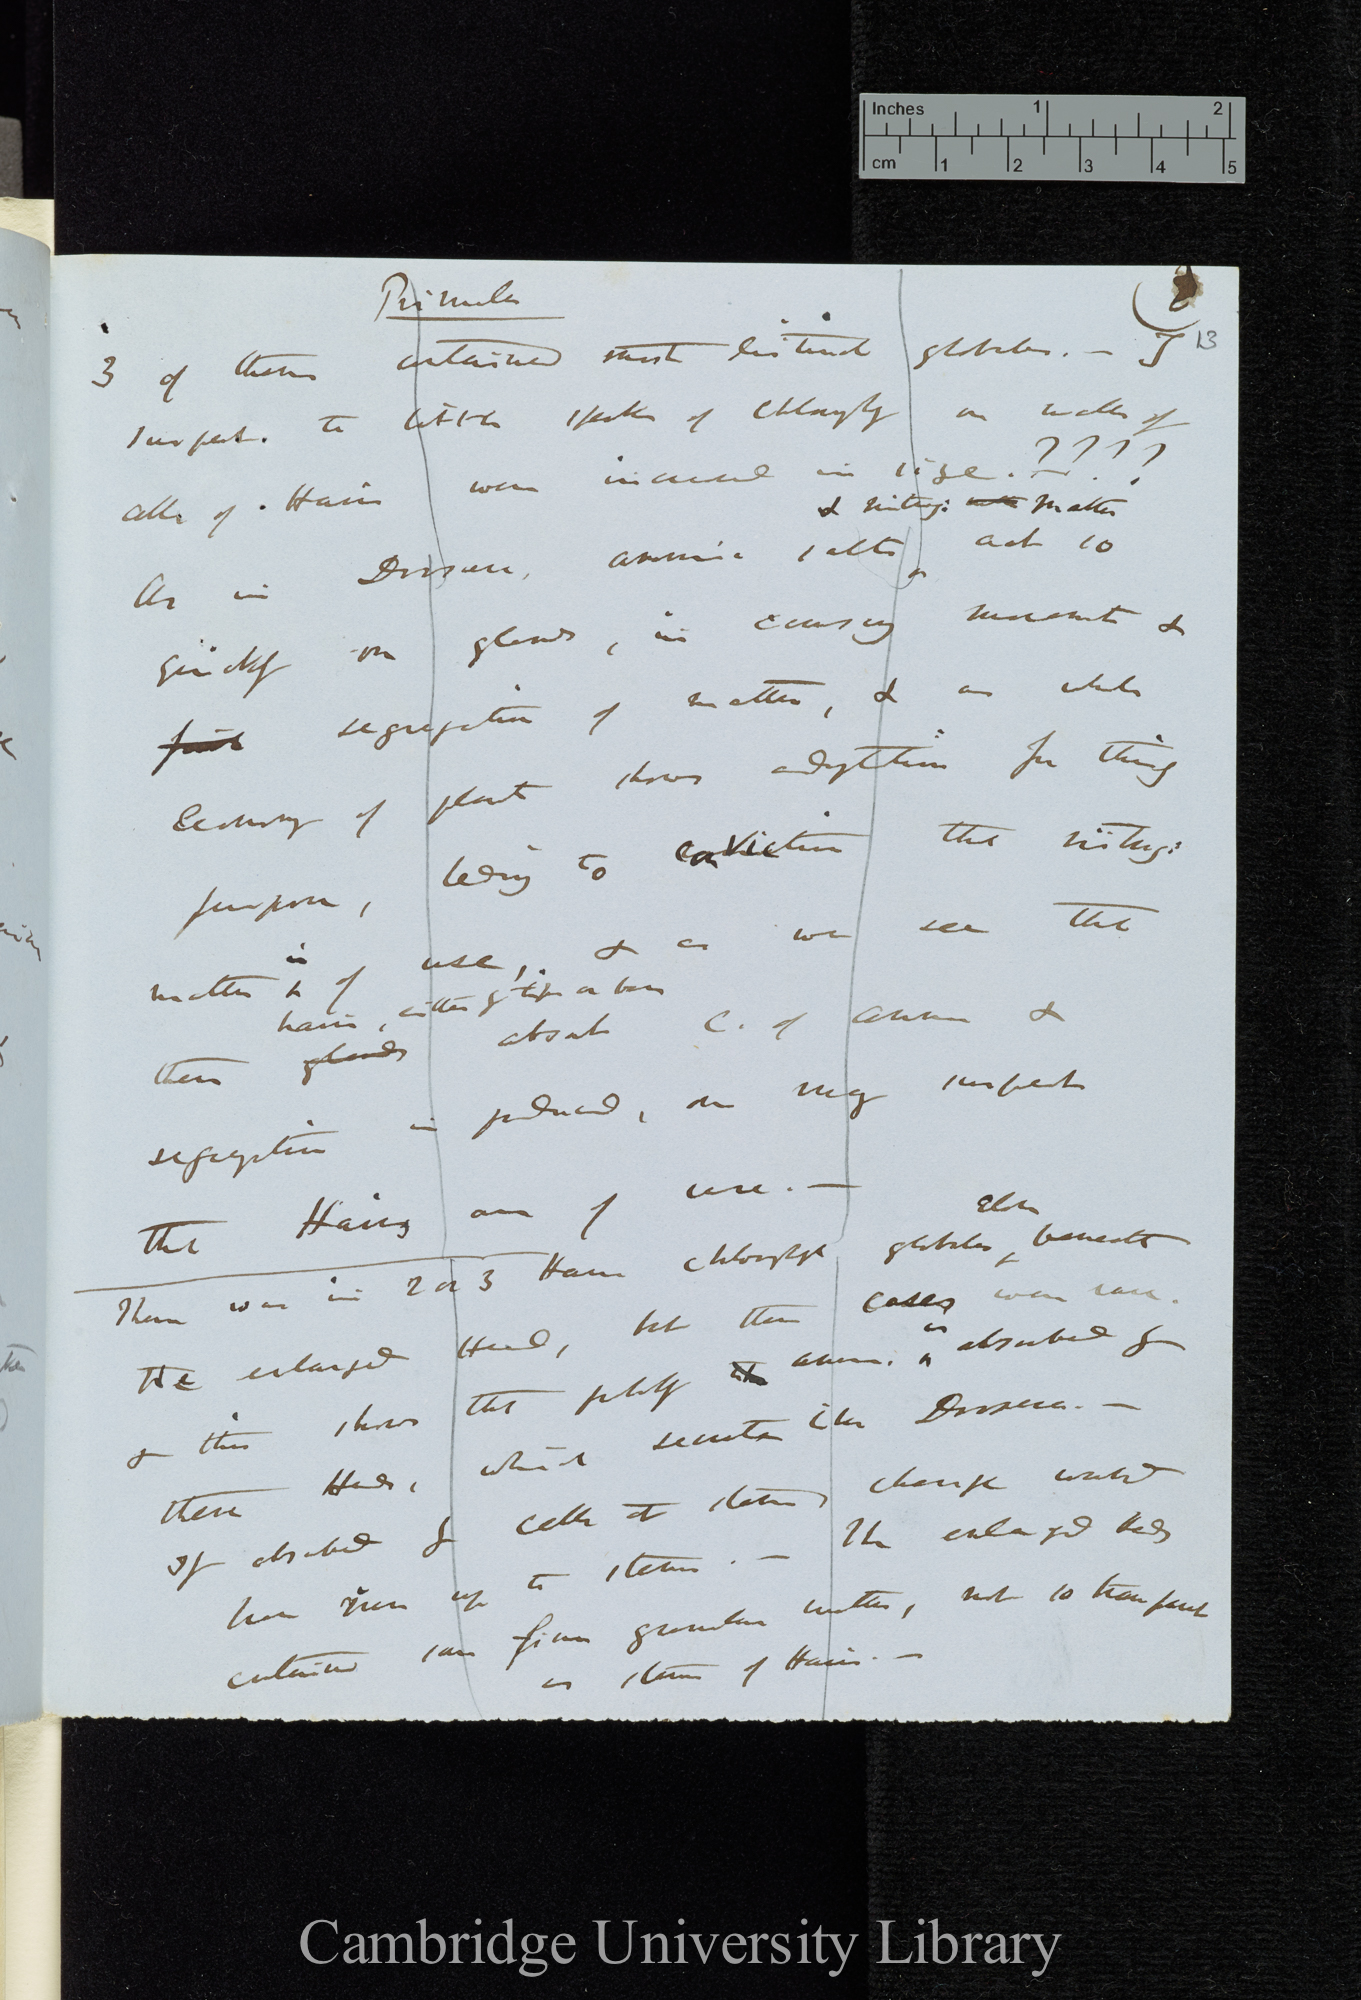 Inches 1 2
cm 1 2 3 4 5
Primula
(8
13
3 of them contained most distinct globules. — I
suspect. the little specks of Chlorophyl on walls of
cells of . Hairs were increased in size. — ? ? ? ?
& nitrog: matter
As in Drosera, ammonia salts act so
quickly on glands, in causing movement &
segregation of matter, & as whole
Economy of plant shows adaptation for this
purpose, leading to conviction that nitrog:
matter is of use, & as we see that
hairs, either by tips or base
these glands absorb C. of Ammon &
segregation is produced, one may suspect
that Hairs are of use. —
There was in 2 or 3 Hairs chlorophyl globules close beneath
the enlarged Head, but these cases were rare.
& this shows that probably ammon. is absorbed by
these Heads, which secrete like Drosera. —
If absorbed by cells at stem, change would
have run up the stem. — The enlarged Heads
contained some fine granular matter, not so transparent
as stem of Hairs. —
Cambridge University Library